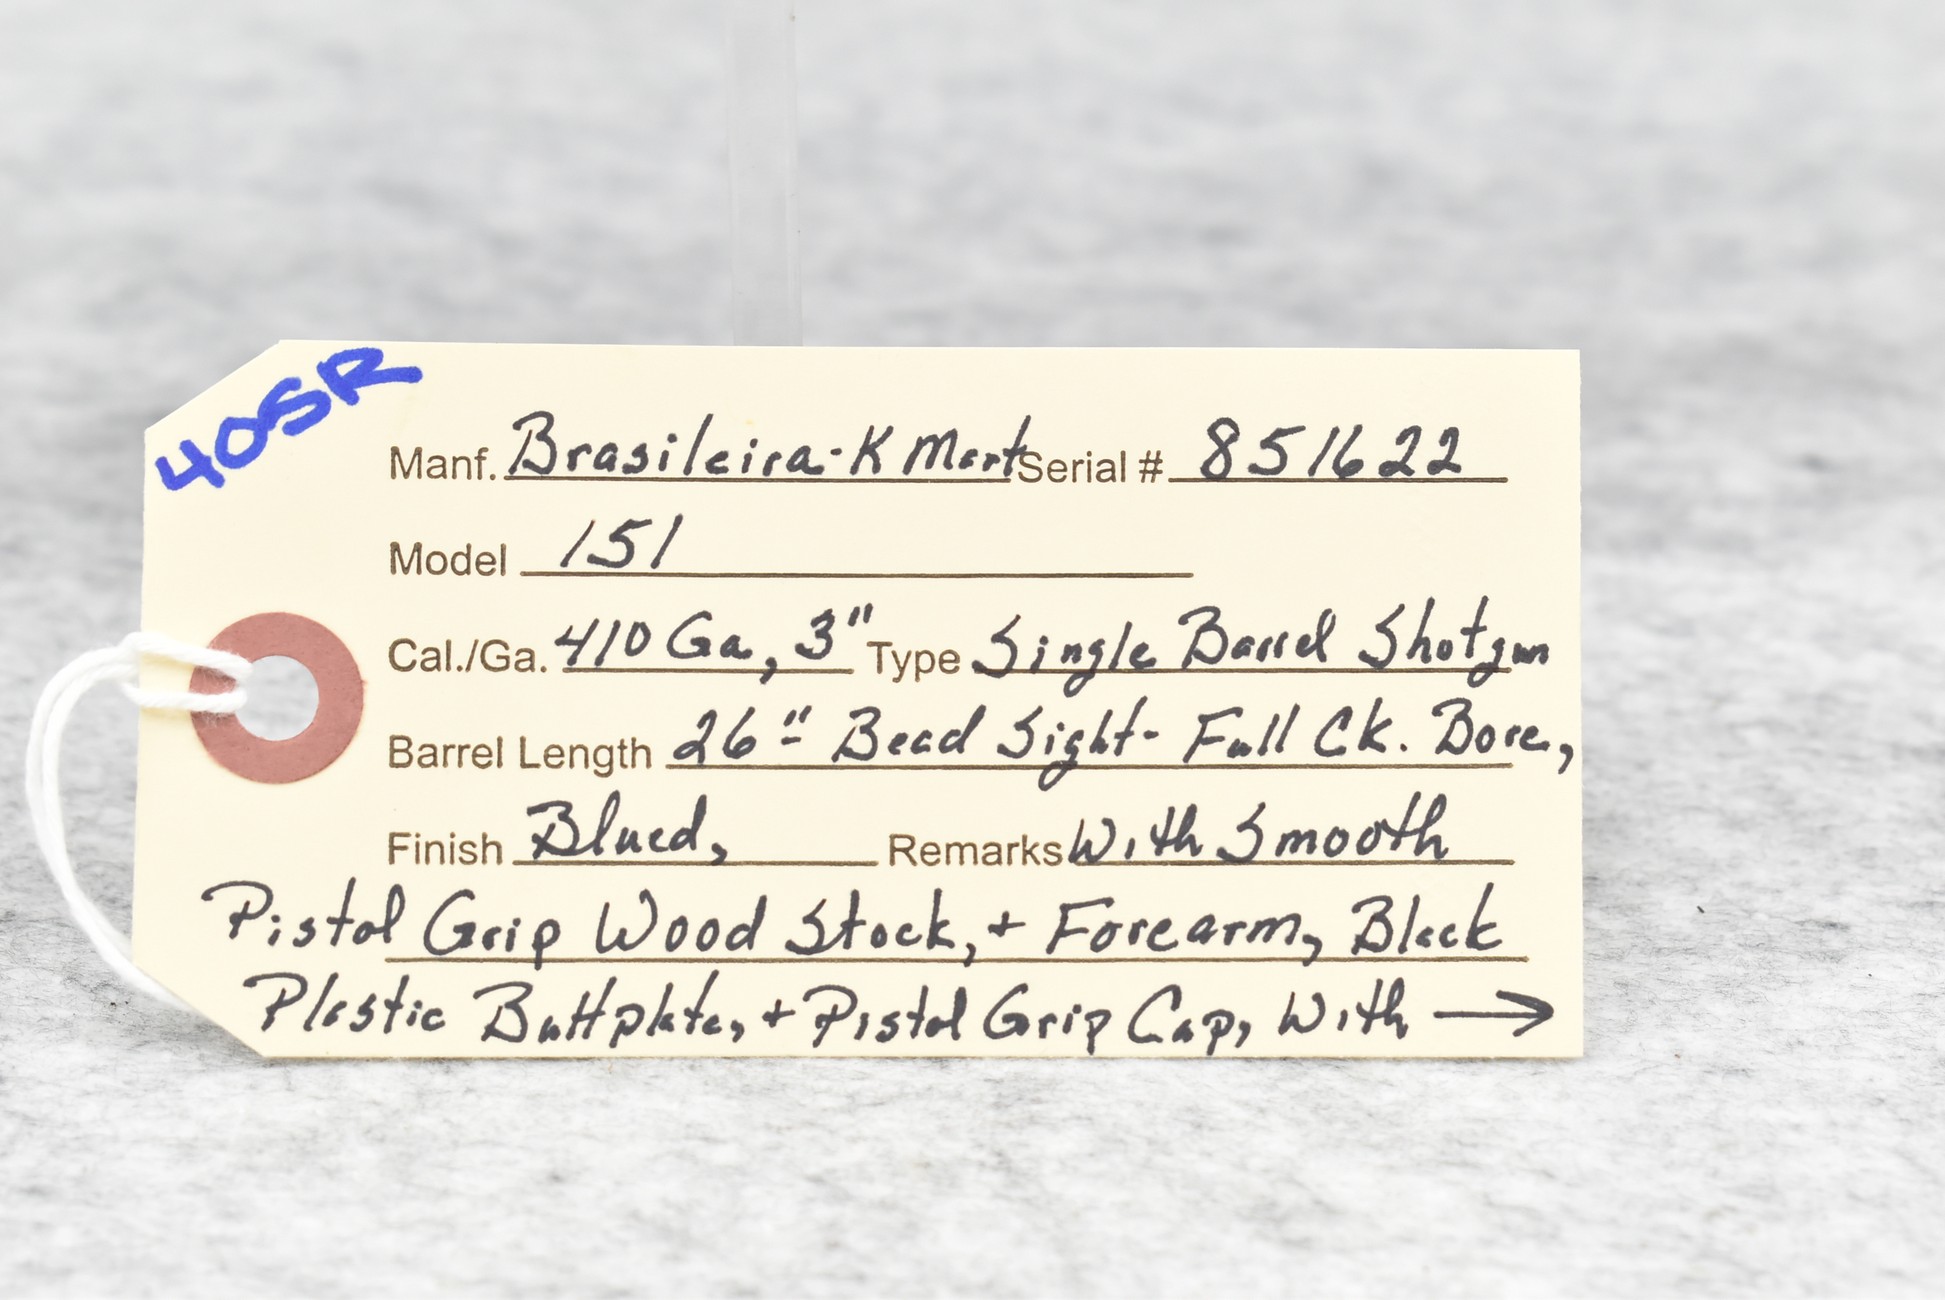 40SR
Manf. Brasileira-K Mart Serial # 851622
Model 151
Cal./Ga. 410 Ga, 3" Type Single Barrel Shotgun
Barrel Length 26"- Bead Sight- Full Ck. Bore,
Finish Blued, Remarks With Smooth
Pistol Grip Wood Stock, + Forearm, Black
Plastic Buttplate, + Pistol Grip Cap, With →